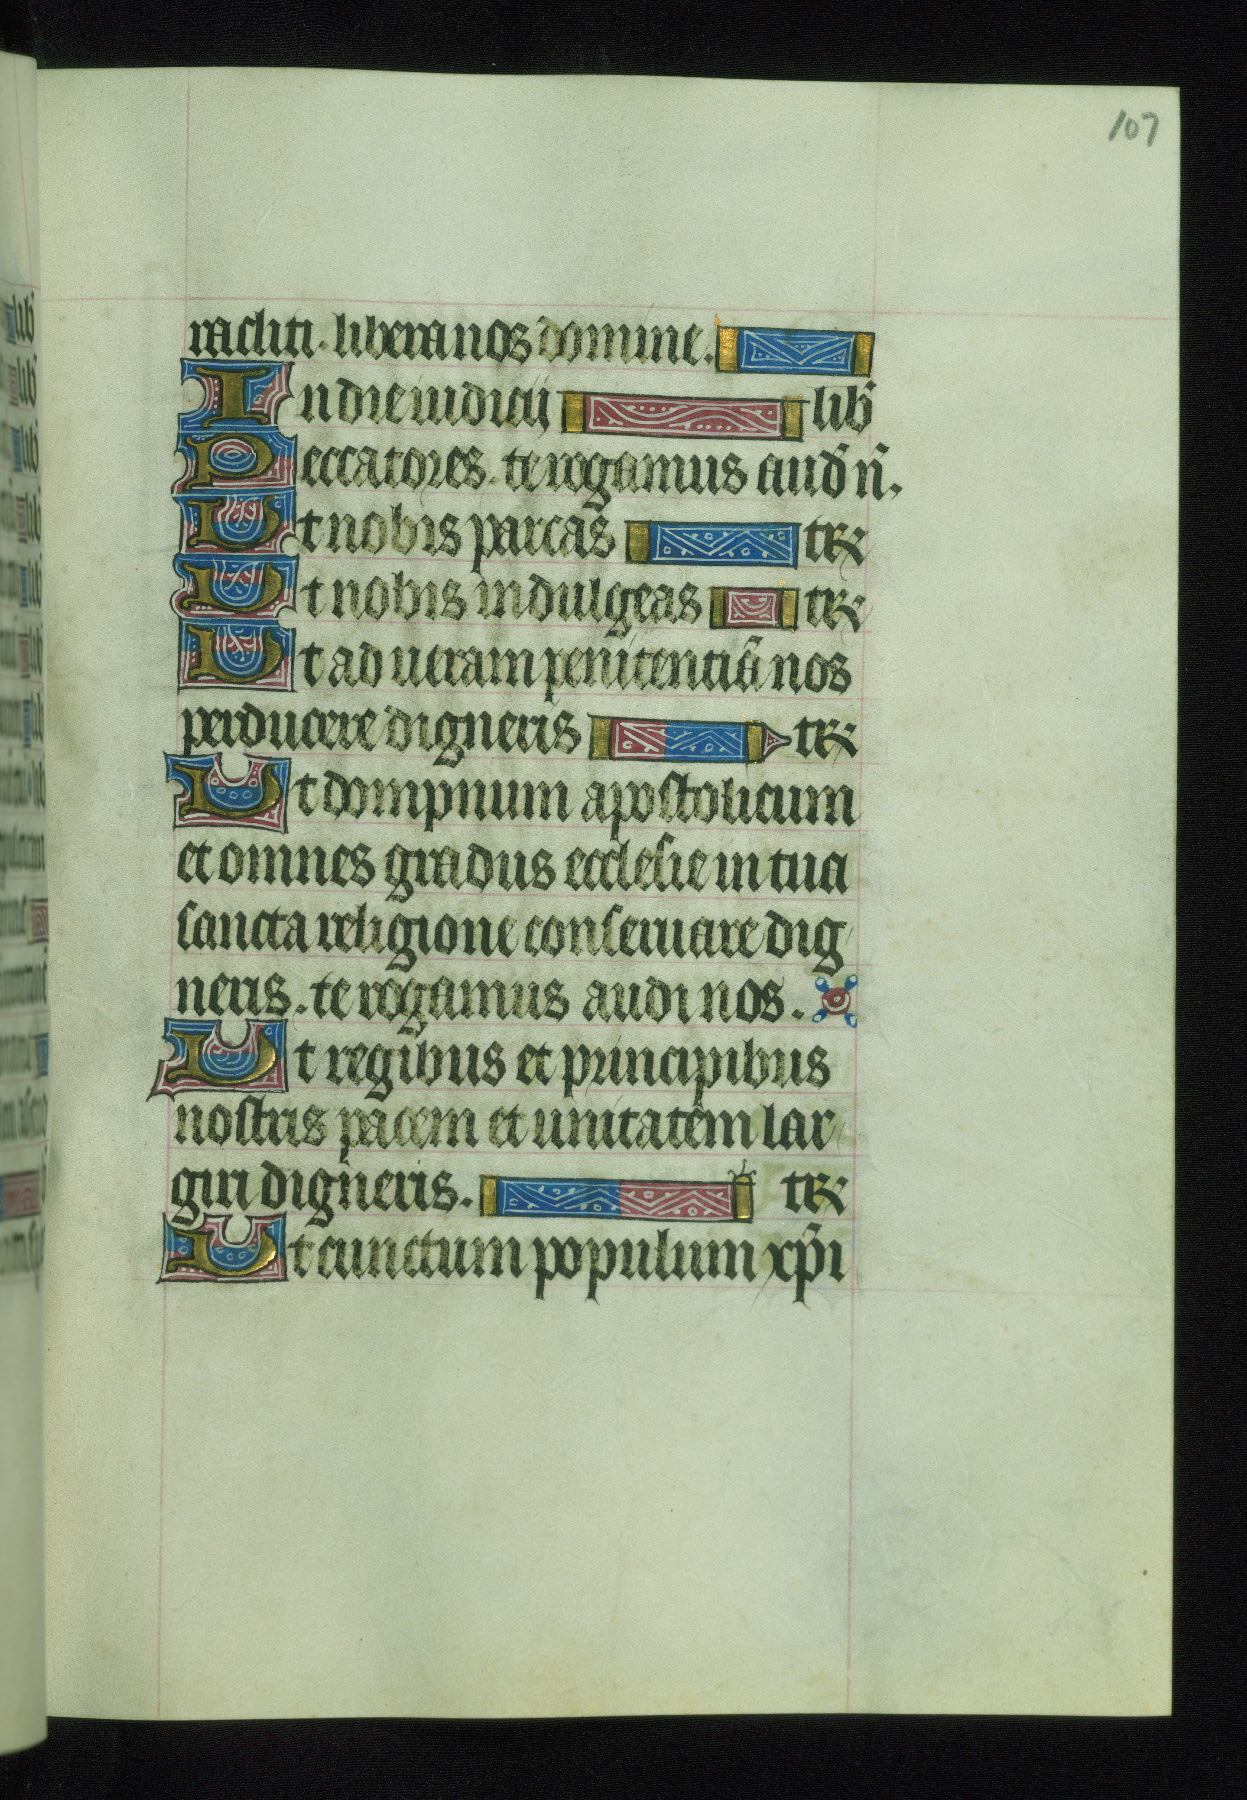 107
racliti. libera nos domine.
In die iudicij lib̄
Peccatores. te rogamus aud̄ n̄.
Ut nobis parcas tꝝ
Ut nobis indulgeas tꝝ
Ut ad ueram penitentiā nos
perducere digneris tꝝ
Ut dompnum apostolicum
et omnes gradus ecclesie in tua
sancta religione conseruare dig
neris. te rogamus audi nos.
Ut regibus et principibus
nostris pacem et unitatem lar
giri digneris. tꝝ
Ut cunctum populum xp̄i